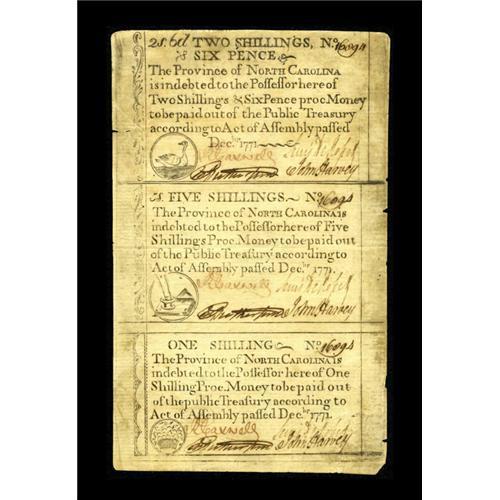 2s. 6d TWO SHILLINGS, No. 16094
& SIX PENCE
The Province of NORTH CAROLINA
is indebted to the Possessor here of
Two Shillings & Six Pence proc. Money
to be paid out of the Public Treasury
according to Act of Assembly passed
Decbr. 1771
RCaswell
JRutherfurd John Harvey
5s. FIVE SHILLINGS No. 16094
The Province of NORTH CAROLINA is
indebted to the Possessor here of Five
Shillings Proc. Money to be paid out
of the Public Treasury according to
Act of Assembly passed Decbr. 1771.
RCaswell
JRutherfurd John Harvey
ONE SHILLING No. 16094
The Province of NORTH CAROLINA is
indebted to the Possessor here of One
Shilling Proc. Money to be paid out
of the public Treasury according to
Act of Assembly passed Decbr. 1771.
RCaswell
JRutherfurd John Harvey